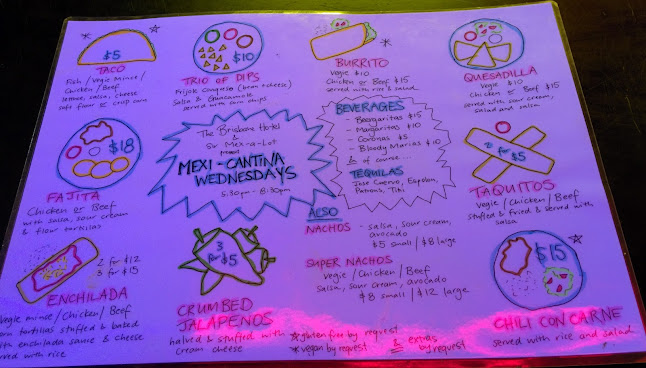 $5
TACO
Fish / Vegie Mince /
Chicken / Beef
lettuce, salsa, cheese
soft flour or crisp corn
$10
TRIO OF DIPS
Frijole Conqueso (bean & cheese)
Salsa & Guacamole
served with corn chips
BURRITO
Vegie $10
Chicken or Beef $15
served with rice & salad
QUESADILLA
Vegie $10
Chicken or Beef $15
served with sour cream,
salad and salsa
$18
FAJITA
Chicken or Beef
with salsa, sour cream
& flour tortillas
The Brisbane Hotel
&
Sir Mex-a-Lot
present
MEXI-CANTINA
WEDNESDAYS
5.30pm - 8:30pm
BEVERAGES
- Beergaritas $15
- Margaritas $10
- Coronas $8
- Bloody Marias $10
& of course...
TEQUILAS
Jose Cuervo, Espolon,
Patron,
2 for $5
TAQUITOS
Vegie / Chicken / Beef
stuffed & fried & served with
salsa
2 for $12
3 for $15
ENCHILADA
vegie mince / Chicken / Beef
corn tortillas stuffed & baked
with enchilada sauce & cheese
served with rice
3
for $5
CRUMBED
JALAPEÑOS
halved & stuffed with
cream cheese
ALSO
NACHOS - salsa, sour cream,
avocado
$5 small / $8 large
SUPER NACHOS
Vegie / Chicken / Beef
salsa, sour cream, avocado
$8 small / $12 large
* gluten free by request
* vegan by request
& extras
by request
$15
CHILI CON CARNE
served with rice and salad